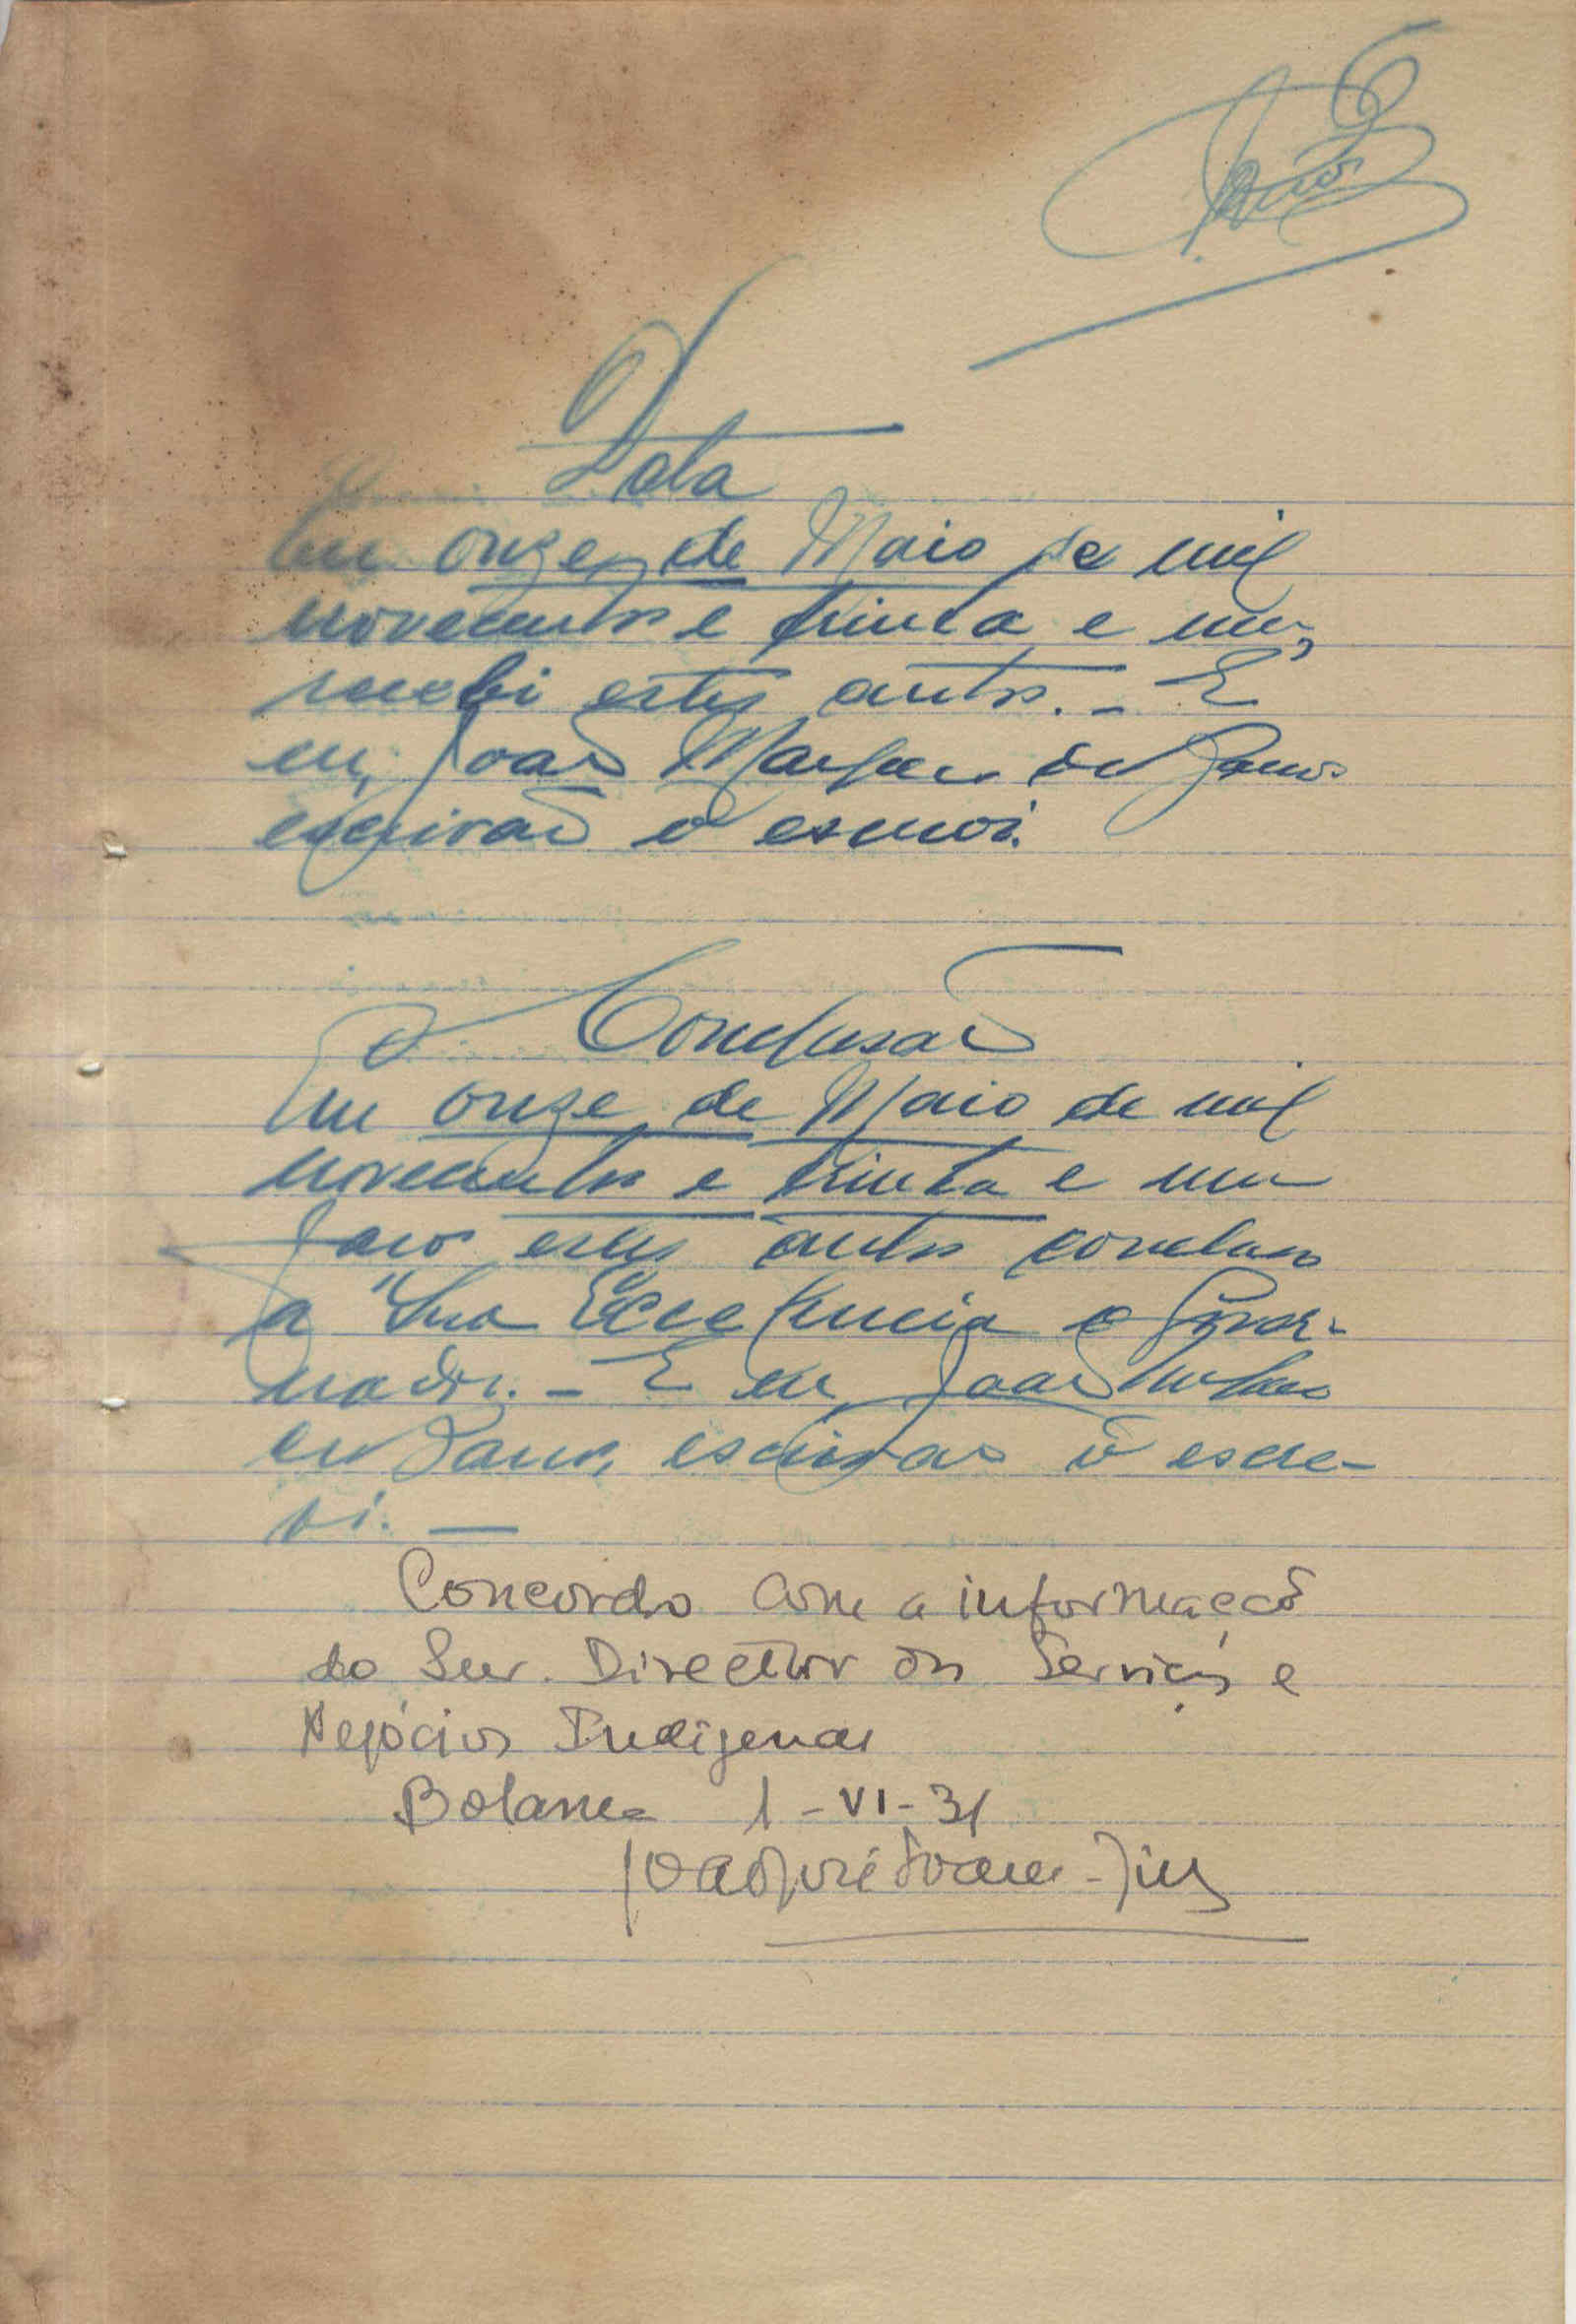 Data
Em onze de Maio de mil
novecentos e trinta e um,
recebi estes autos. - E
eu, João
escrivão o escrevi.
Conclusão
Em onze de Maio de mil
novecentos e trinta e um
faço estes autos conclusos
a Sua Excelencia o Gover-
nador. - E eu, João
escrivão o escre-
vi. —
Concordo com a informação
do Snr. Director dos Serviços e
Negócios Indígenas
Bolama 1-VI-31
João José Soares Zil